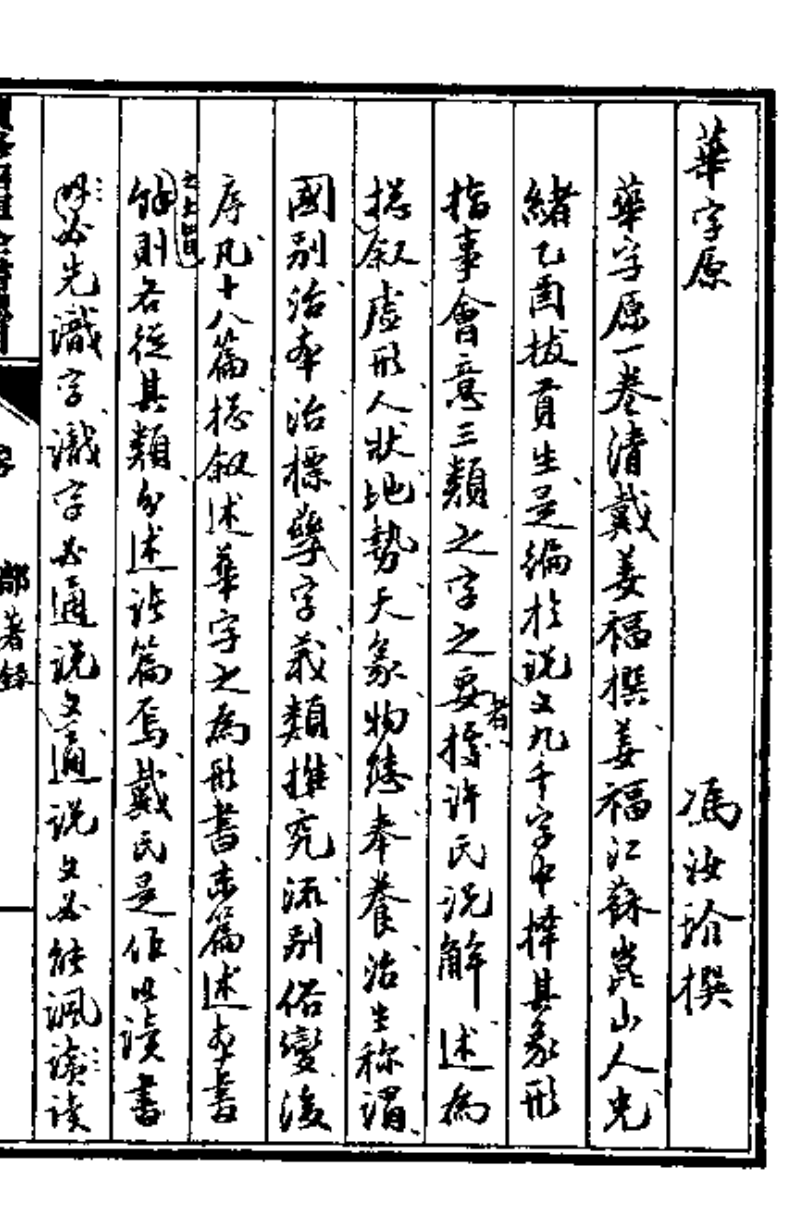 華字原
馮汝玠撰
華字原一卷清戴姜福撰姜福江蘇崑山人光
緒乙酉拔貢生是編於说文九千字中擇其象形
指事會意三類之字之要者據许氏说解述為
捴叙虚形人状地勢天象物態奉養治生称谓
國别治本治標孳字義類推究流别俗變後
序凡十八篇捴叙述華字之為形書末篇述本書
之大旨
餘则各從其類分述诸篇焉戴氏是作以读書
必先識字識字必通说文通说文必能諷读读
部著錄